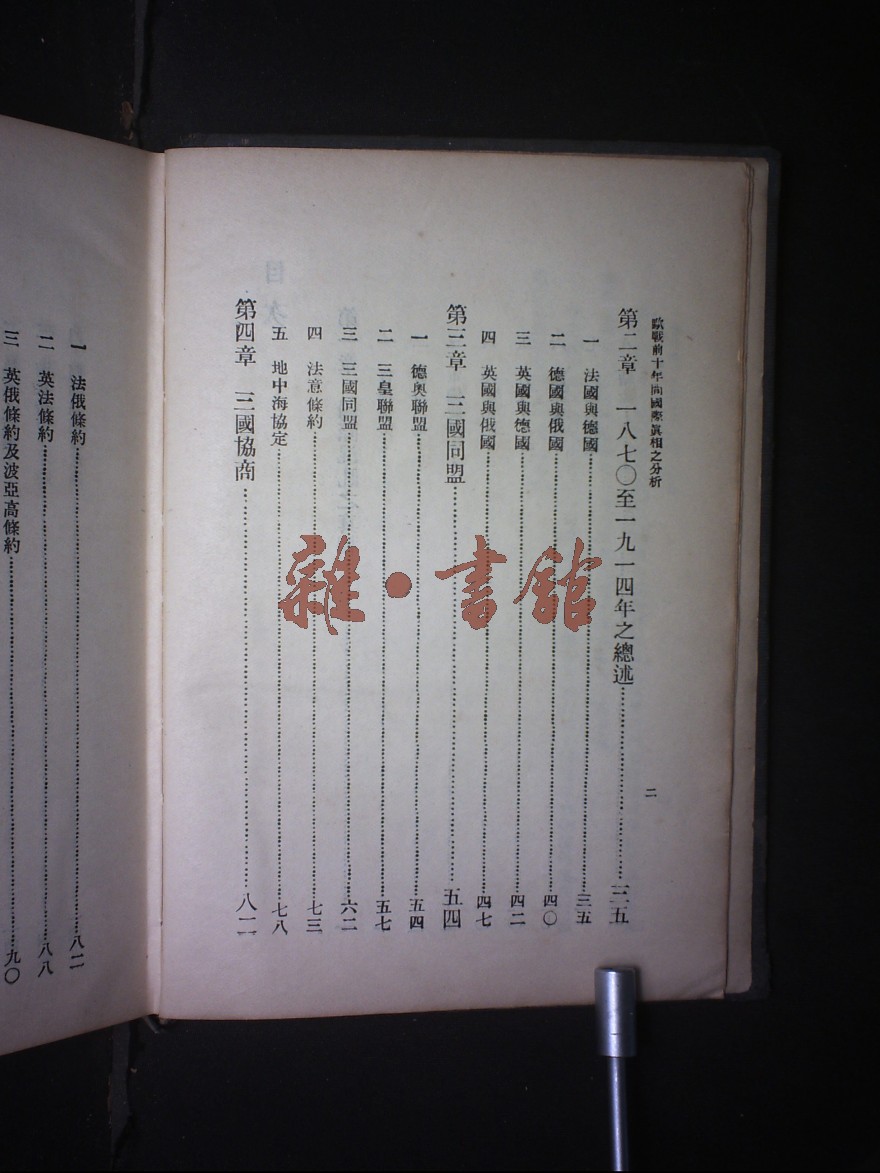 歐戰前十年間國際眞相之分析
二
第二章　一八七〇至一九一四年之總述……三五
一　法國與德國……三五
二　德國與俄國……四〇
三　英國與德國……四二
四　英國與俄國……四七
第三章　三國同盟……五四
一　德奧聯盟……五四
二　三皇聯盟……五七
三　三國同盟……六二
四　法意條約……七三
五　地中海協定……七八
第四章　三國協商……八二
一　法俄條約……八二
二　英法條約……八八
三　英俄條約及波亞高條約……九〇
雜·書館